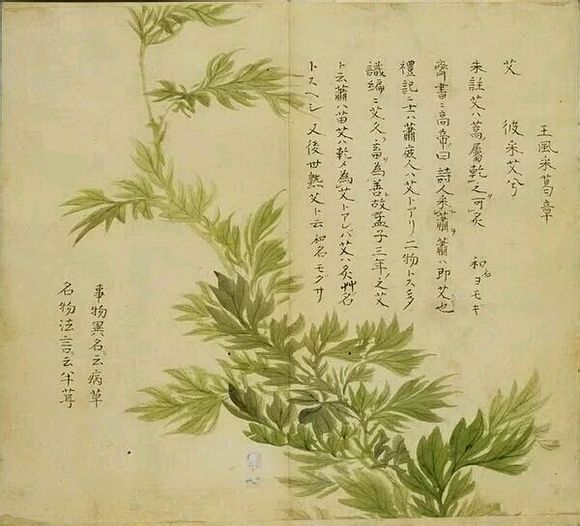 王風采葛章
艾 彼采艾兮
朱註艾ハ蒿屬乾之可灸 和名ヨモギ
齊書ニ高帝曰詩人采蕭蕭ハ即艾也
禮記ニ士ハ蕭庶人ハ艾トアリ二物トス多
識編ニ艾久畜為善故孟子三年ノ之艾
ト云蕭ハ苗艾ハ乾メ為艾トアレバ艾ハ灸艸名
トスヘシ又後世熟艾ト云和名モグサ
事物異名ニ云病草
名物法言ニ云